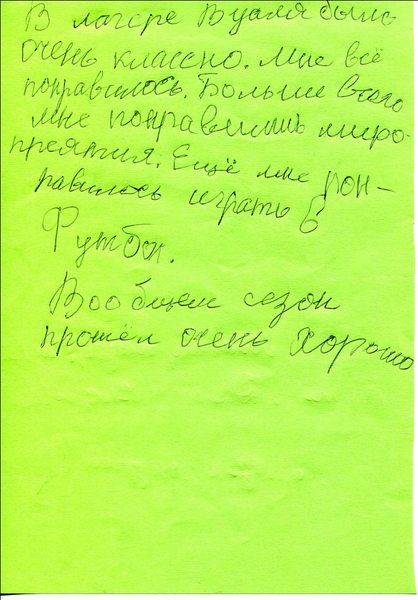 В лагере Вуаля было
очень классно. Мне всё
понравилось. Больше всего
мне понравились миро-
приятия. Ещё мне пон-
равилось играть в
Футбол.
Вообщем сезон
прошёл очень хорошо